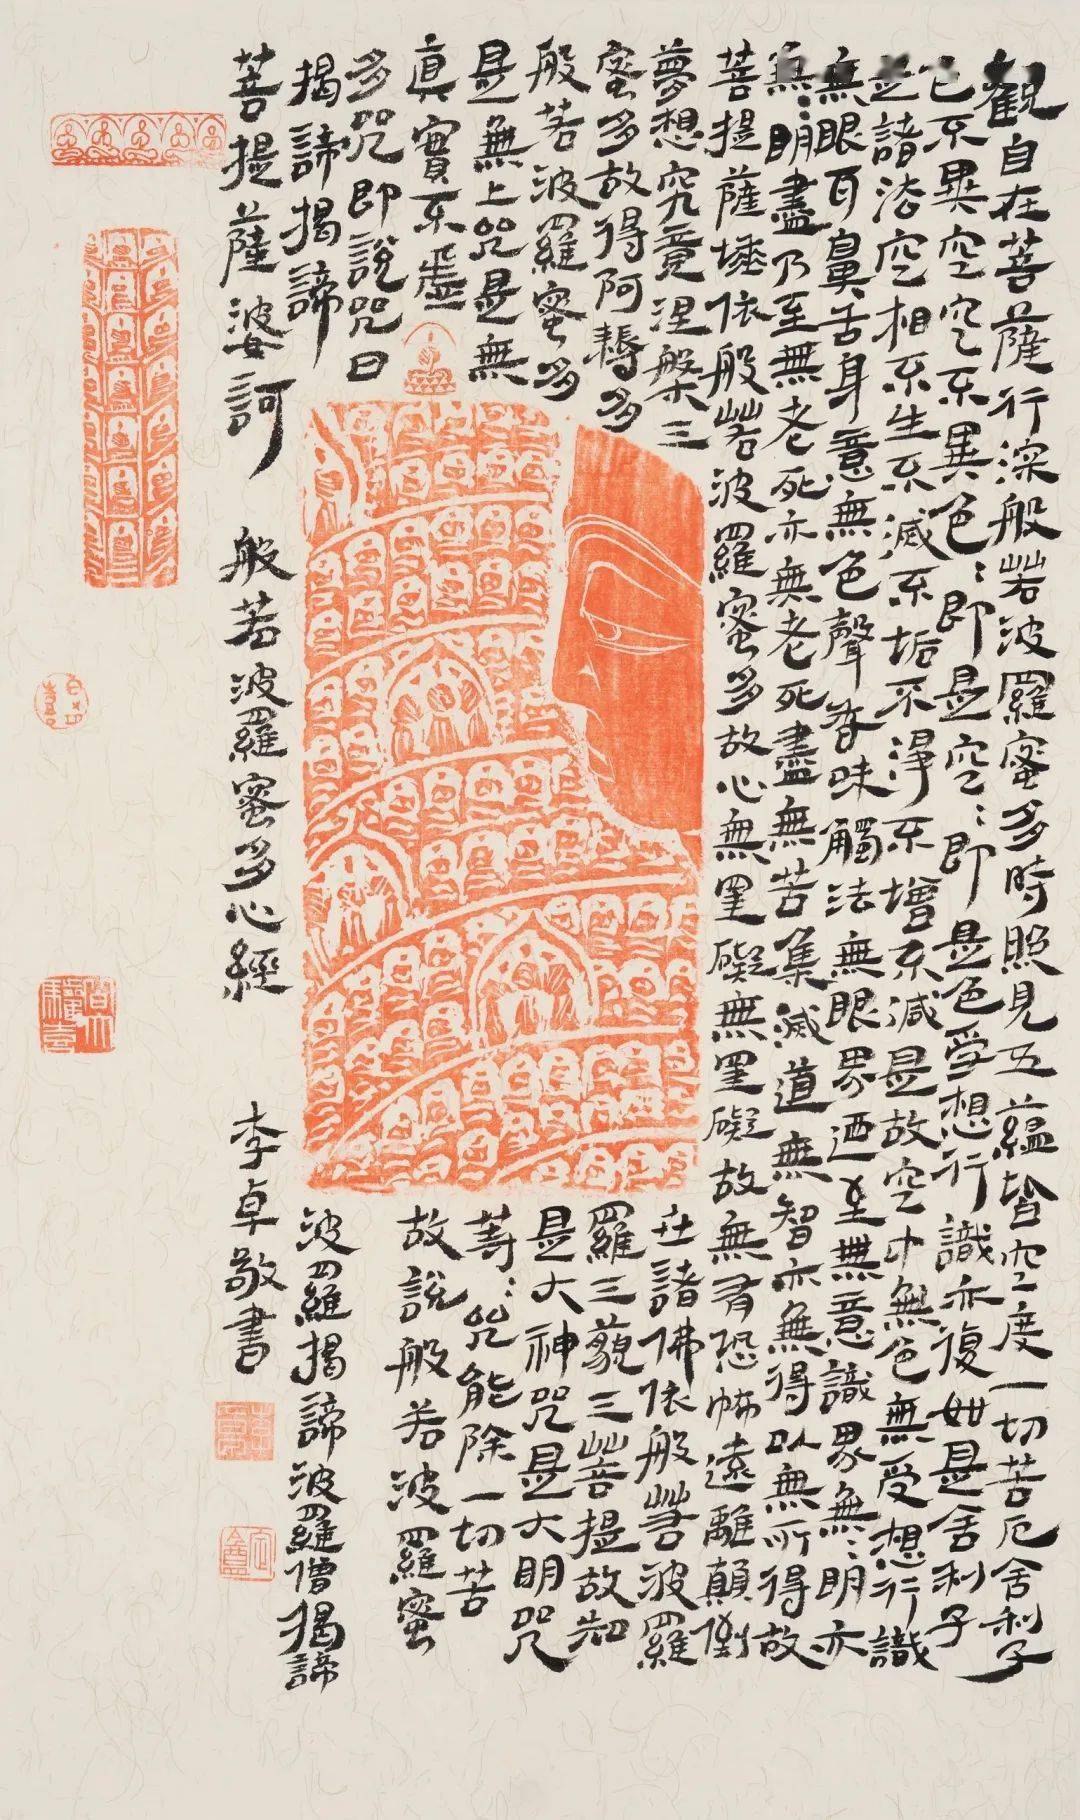 觀自在菩薩行深般若波羅蜜多時照見五蘊皆空度一切苦厄舍利子
色不異空空不異色〻即是空〻即是色受想行識亦復如是舍利子
是諸法空相不生不滅不垢不淨不增不減是故空中無色無受想行識
無眼耳鼻舌身意無色聲香味觸法無眼界迺至無意識界無〻明亦
無〻明盡乃至無老死亦無老死盡無苦集滅道無智亦無得以無所得故
菩提薩埵依般若波羅蜜多故心無罣礙無罣礙故無有恐怖遠離顛倒
夢想究竟涅槃三世諸佛依般若波羅
蜜多故得阿耨多羅三藐三菩提故知
般若波羅蜜多是大神咒是大明咒
是無上咒是無等〻咒能除一切苦
真實不虛故說般若波羅蜜
多咒即說咒曰
揭諦揭諦波羅揭諦波羅僧揭諦
菩提薩婆訶 般若波羅蜜多心經 李卓敬書